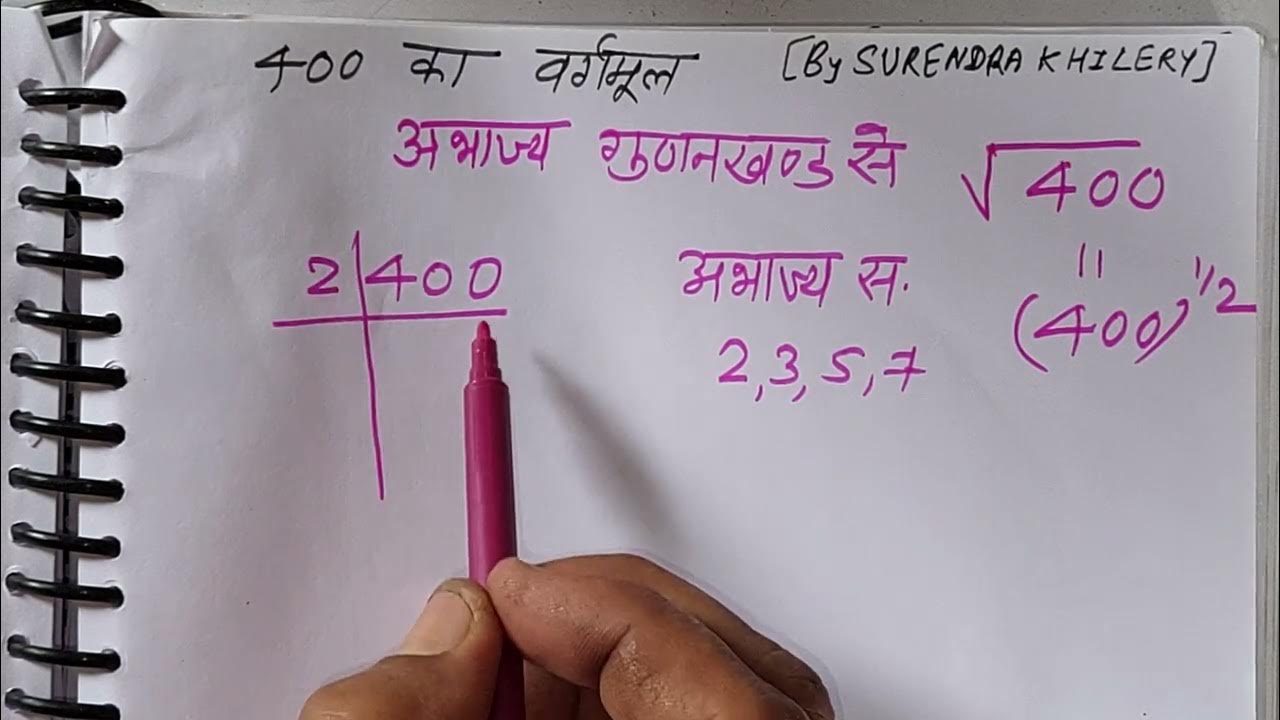 400 का वर्गमूल [By SURENDRA KHILERY]
अभाज्य गुणनखण्ड से √400
2 400
अभाज्य स.
2, 3, 5, 7
=
(400)^1/2